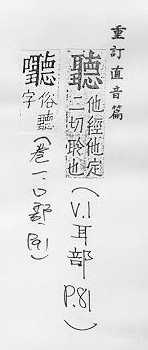 重訂直音篇
聽
他經他定
二切聆也
(V.1 耳部 P.81)
俗聽
字
(卷一.口部.